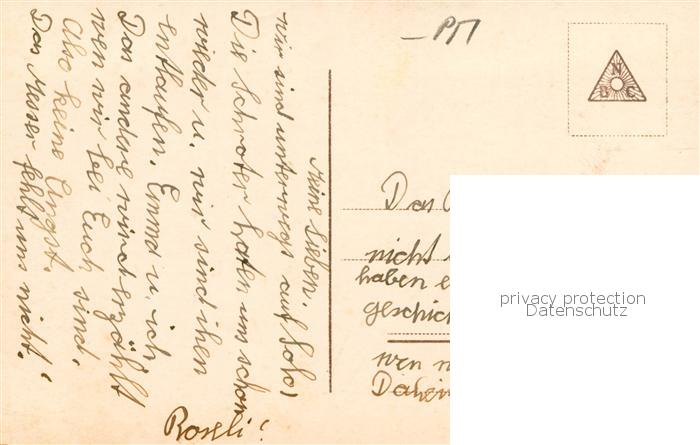 Meine Lieben.
wir sind unterwegs auf Solo,
Die Schroter haben uns schon
wieder u. wir sind ihen
entlaufen. Emma u. ich
Das andere wird erzählt
wen wir bei Euch sind.
Also keine Angst.
Das Messer fehlt uns nicht!
Rosli!
N
B C
Das
nicht
haben e
geschich
wen n
Daheim
privacy protection
Datenschutz